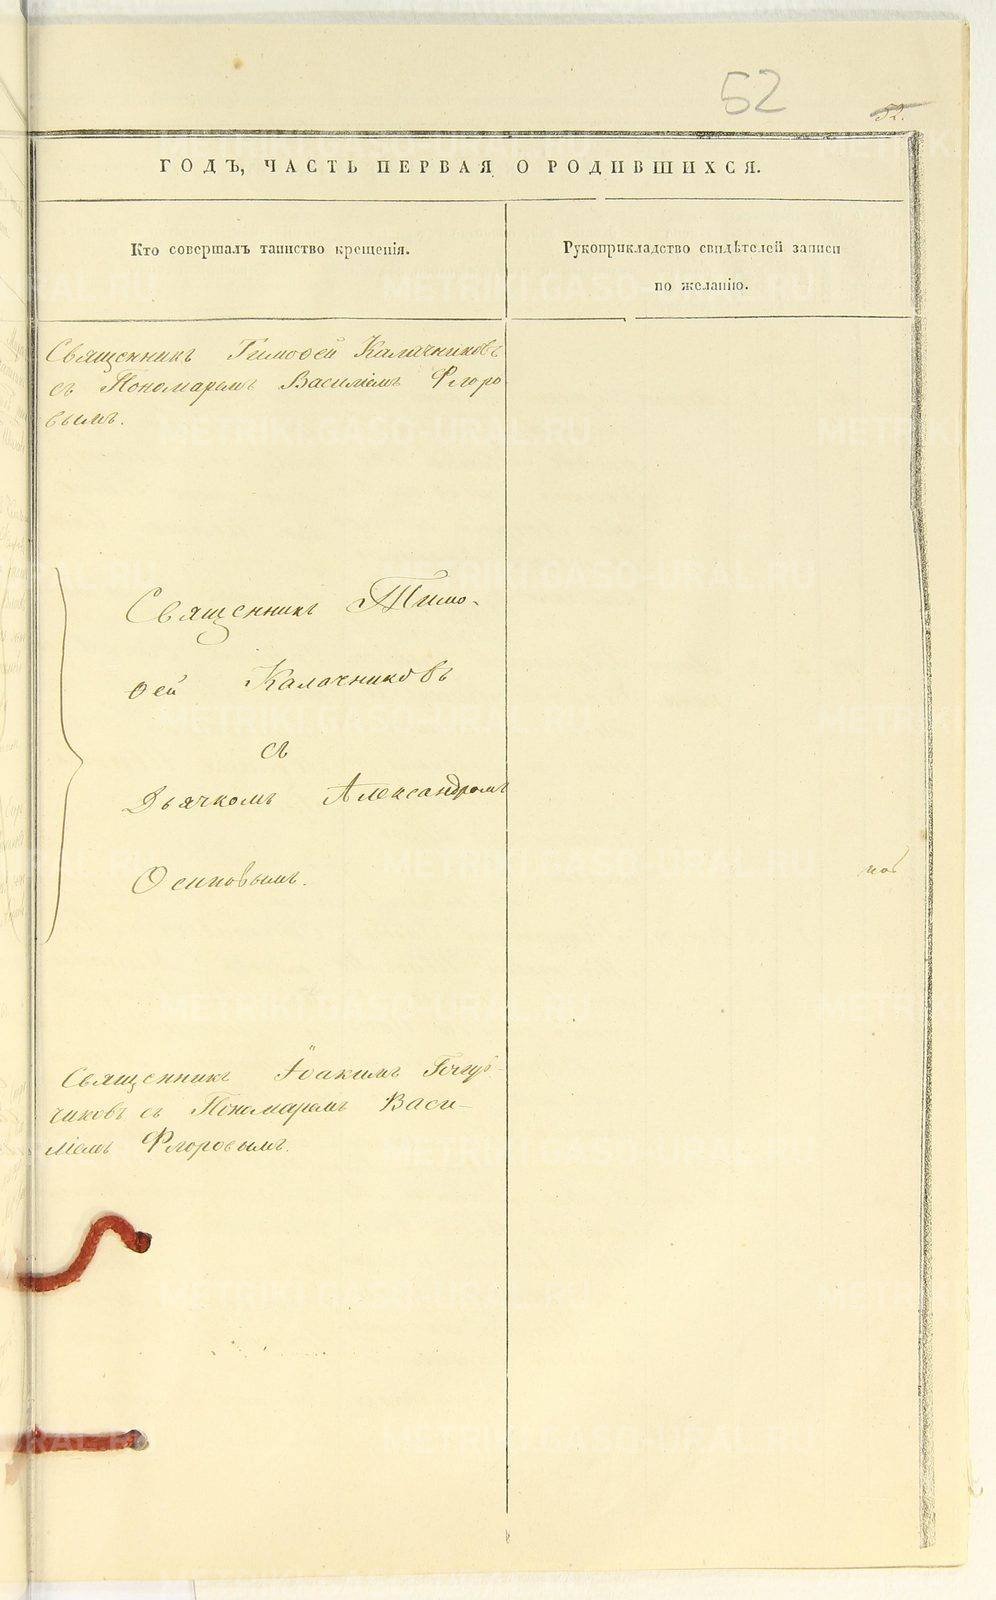 52
52.
ГОДЪ, ЧАСТЬ ПЕРВАЯ О РОДИВШИХСЯ.
Кто совершалъ таинство крещенія.
Рукоприкладство свидѣтелей записи
по желанію.
Священникъ Тимофей Калачниковъ
съ Пономаремъ Василіемъ Флоро
вымъ.
Священникъ Тимо-
ѳей Калачниковъ
съ
Дьячкомъ Александромъ
Осиповымъ.
Священникъ Іоакимъ
съ Пономаремъ Васи-
ліемъ Флоровымъ.
METRIKI.GASO-URAL.RU